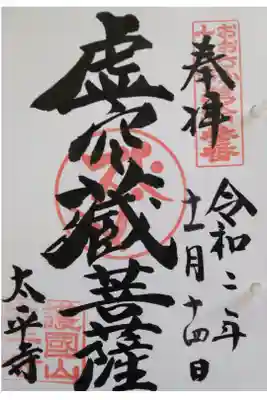 奉拝
令和二年
十一月十四日
虚空蔵菩薩
護國山
太平寺